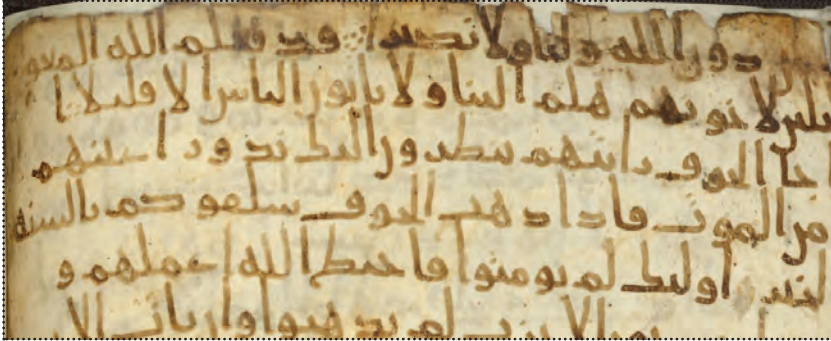 دون الله وليا ولا نصيرا قد يعلم الله المعو
يلين لاخونهم هلم الينا ولا ياتون الباس الا قليلا ا
جا الخوف رايتهم ينظرون اليك تدور اعينهم
من الموت فاذا ذهب الخوف سلقوكم بالسنه
اوليك لم يومنوا فاحبط الله اعملهم و
الاحزب لم يذهبوا وان يات الا